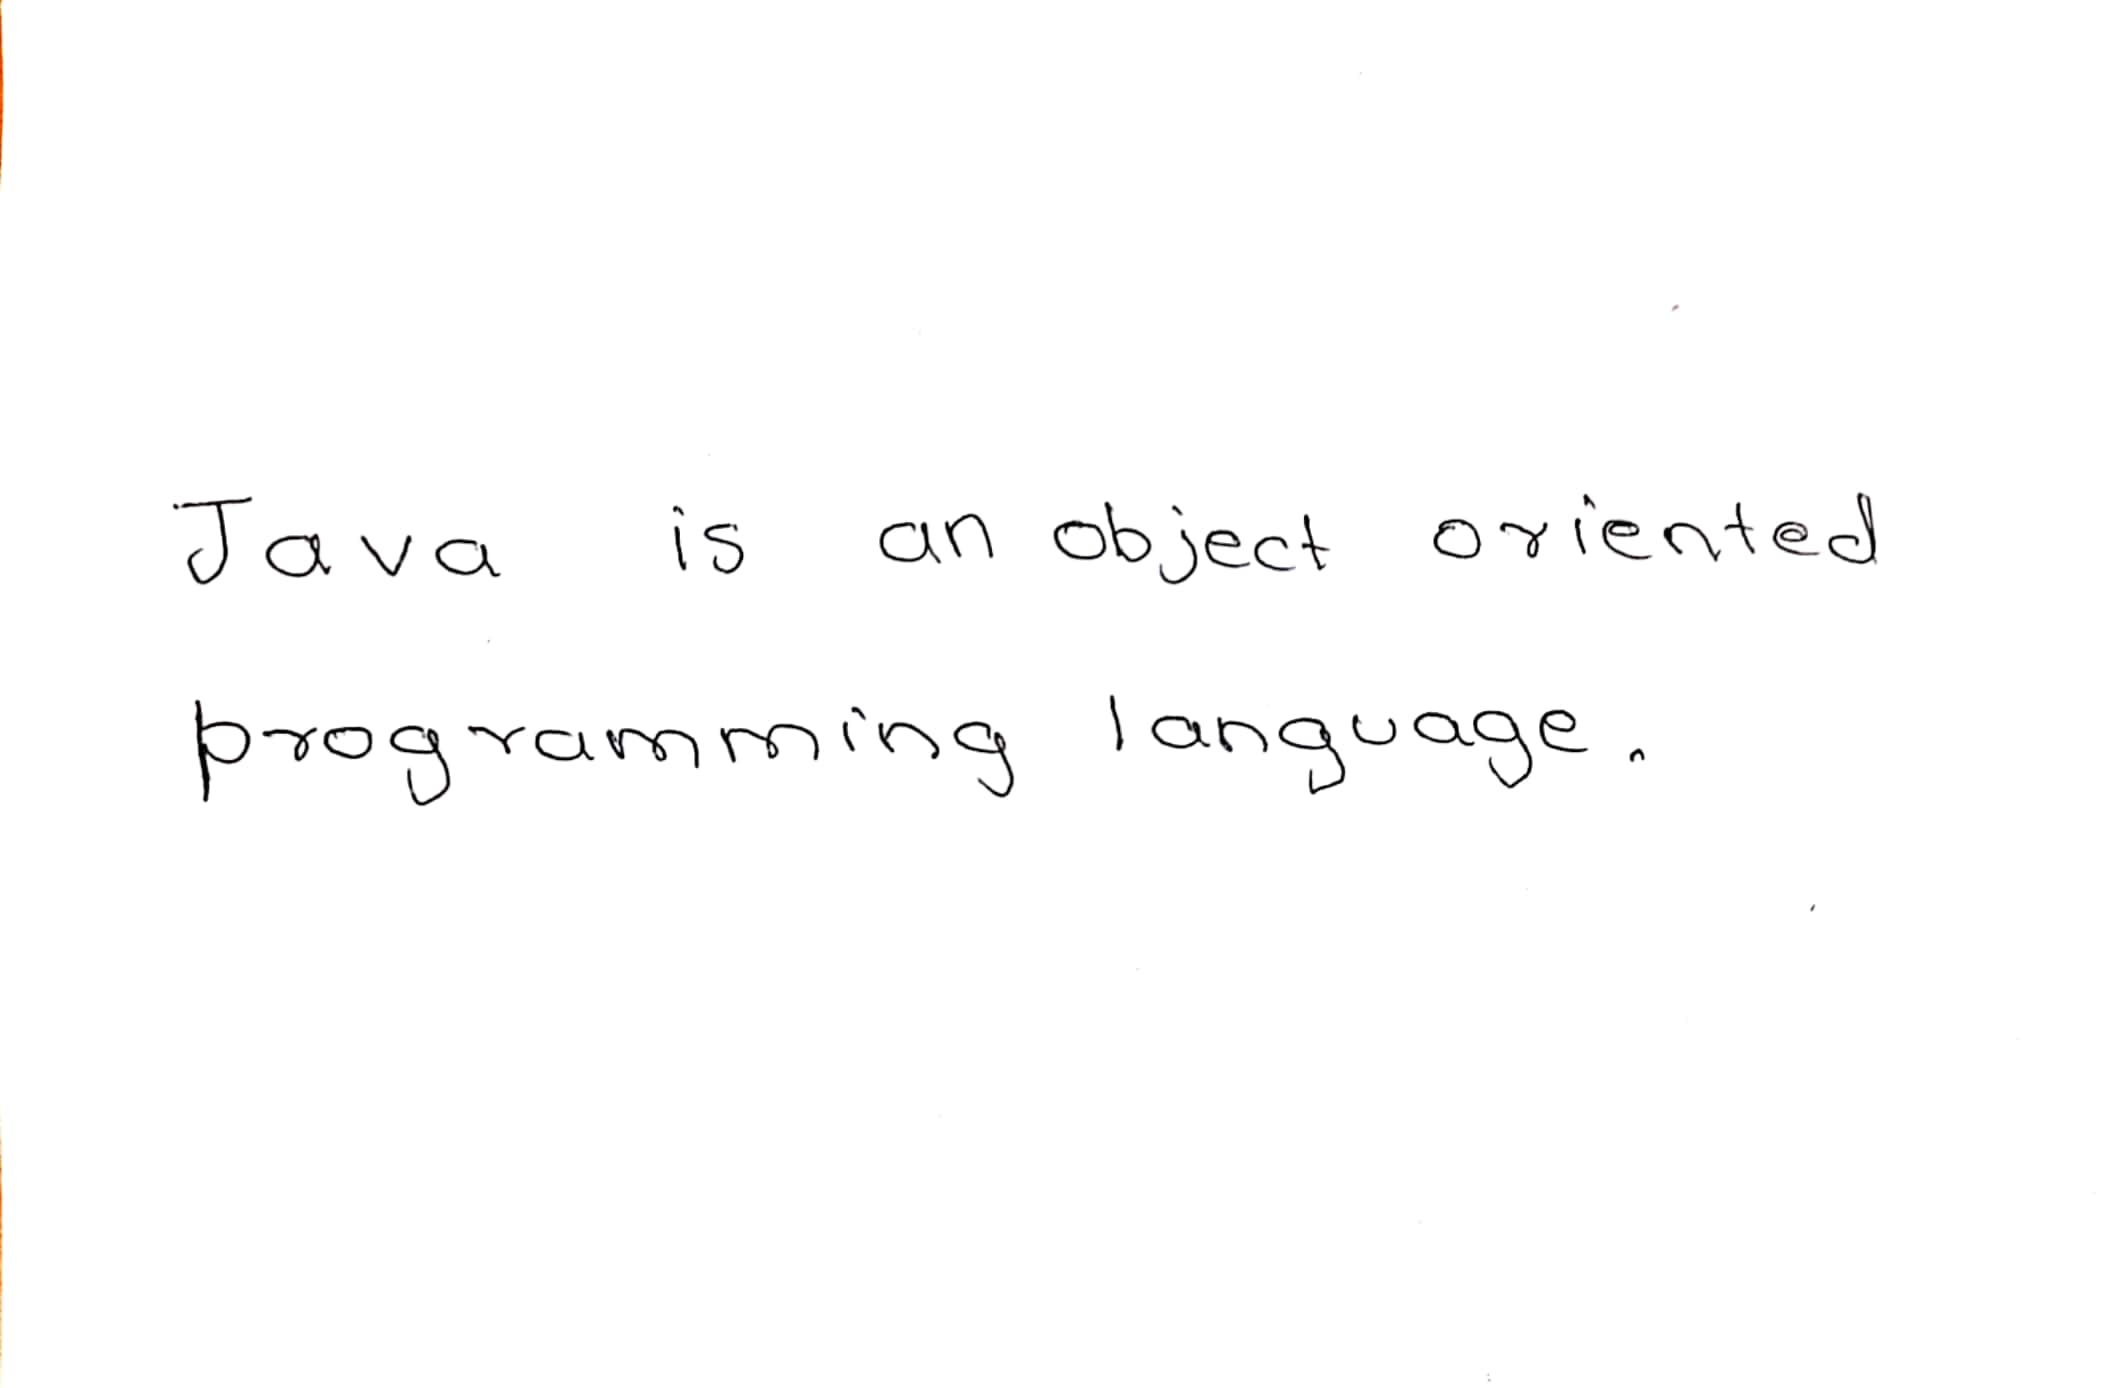 Java is an object oriented
programming language.